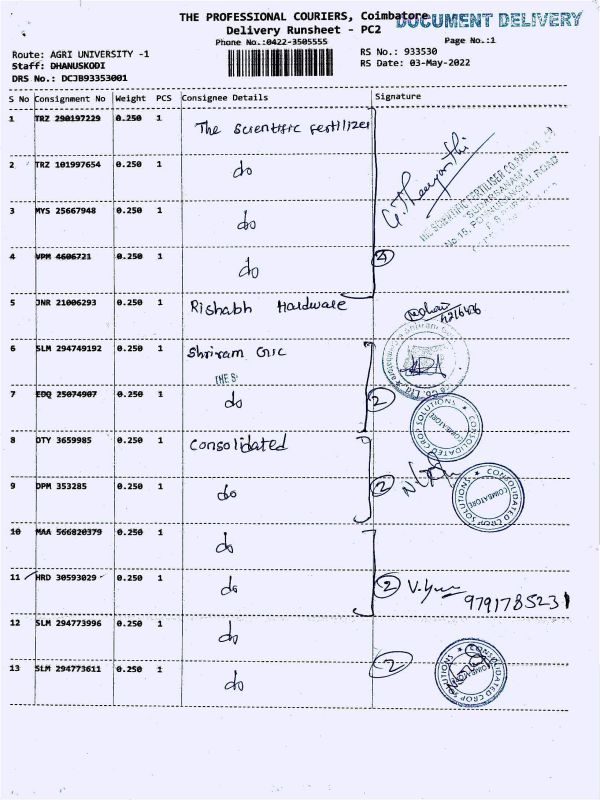 THE PROFESSIONAL COURIERS, Coimbatore
DOCUMENT DELIVERY
Delivery Runsheet - PC2
Phone No.:0422-3505555
Page No.:1
Route: AGRI UNIVERSITY -1
RS No.: 933530
Staff: DHANUSKODI
RS Date: 03-May-2022
DRS No.: DCJB93353001
S No Consignment No Weight PCS Consignee Details Signature
1 TRZ 290197229 0.250 1 The Scientific fertilizer
2 TRZ 101997654 0.250 1 do
3 MYS 25667948 0.250 1 do
4 VPM 4606721 0.250 1 do 4
5 JNR 21006293 0.250 1 Rishabh Hardware
6 SLM 294749192 0.250 1 Shriram
THE S
7 EDQ 25074907 0.250 1 do 2
8 OTY 3659985 0.250 1 Consolidated
9 DPM 353285 0.250 1 do 2
10 MAA 566820379 0.250 1 do
11 HRD 30593029 0.250 1 do 2
9791785231
12 SLM 294773996 0.250 1 do
13 SLM 294773611 0.250 1 do 2
THE SCIENTIFIC FERTILISER CO. PRIVATE
CONSOLIDATED CROP SOLUTIONS
COIMBATORE
CONSOLIDATED CROP SOLUTIONS
COIMBATORE
CONSOLIDATED CROP SOLUTIONS